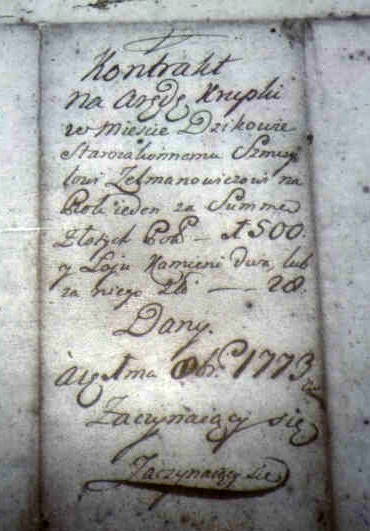 Kontrakt
na Arędę Krupki
w mieście Dzikowie
Starozakonnemu Szmuy
lowi Zelmanowiczowi na
Rok ieden za Summę
Złotych Pol: — 1500.
y Łoju Kamieni dwa, lub
za niego Zł: — 28.
Dany.
1773
Zaczynaiący się
Zaczynaiący się